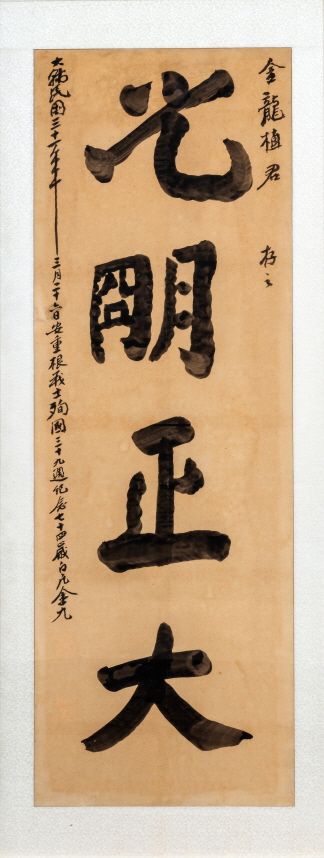 金龍植君 存之
光朙正大
大韓民國三十一年三月二十六日安重根義士殉國三十九週紀念七十四歲白凡金九